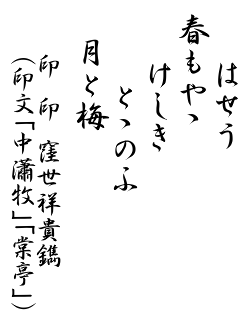 はせう
春もやゝ
けしき
とゝのふ
月と梅
印 印 窪世祥貴鐫
(印文「中瀟牧」「棠亭」)